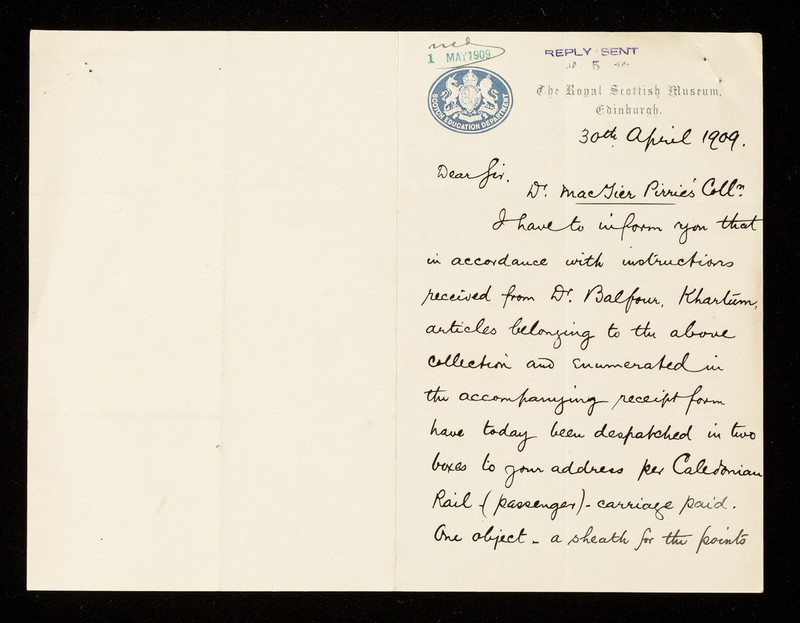 1 MAY 1909
REPLY SENT
5
SCOTCH EDUCATION DEPARTMENT
The Royal Scottish Museum,
Edinburgh.
30th April 1909.
Dear Sir.
Dr. MacTier Pirrie's Colln.
I have to inform you that
in accordance with instructions
received from Dr. Balfour, Khartūm,
articles belonging to the above
collection and enumerated in
the accompanying receipt form
have today been despatched in two
boxes to your address per Caledonian
Rail - (passenger) - carriage paid.
One object - a sheath for the points